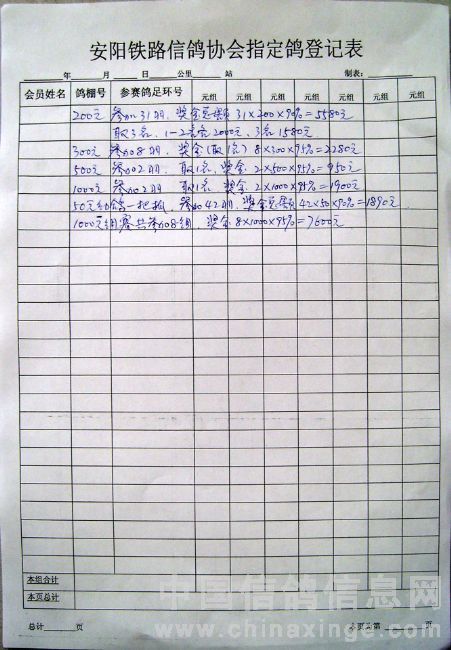 安阳铁路信鸽协会指定鸽登记表
年 月 日 公里 站 制表：
会员姓名 鸽棚号 参赛鸽足环号 元组 元组 元组 元组 元组 元组
200元 参加31羽，奖金总额 31×200×90%=5580元
取3名，1-2名各2000元，3名1580元
300元 参加8羽，奖金（取1名）8×300×95%=2280元
500元 参加2羽，取1名，奖金 2×500×95%=950元
1000元 参加2羽 取1名，奖金 2×1000×95%=1900元
50元 鸽一把抓，参加42羽，奖金总额 42×50×90%=1890元
1000元组赛共参加8组 奖金 8×1000×95%=7600元
本组合计
本页总计
总计 页 本页为第 页
中国信鸽信息网
www.chinaxinge.com